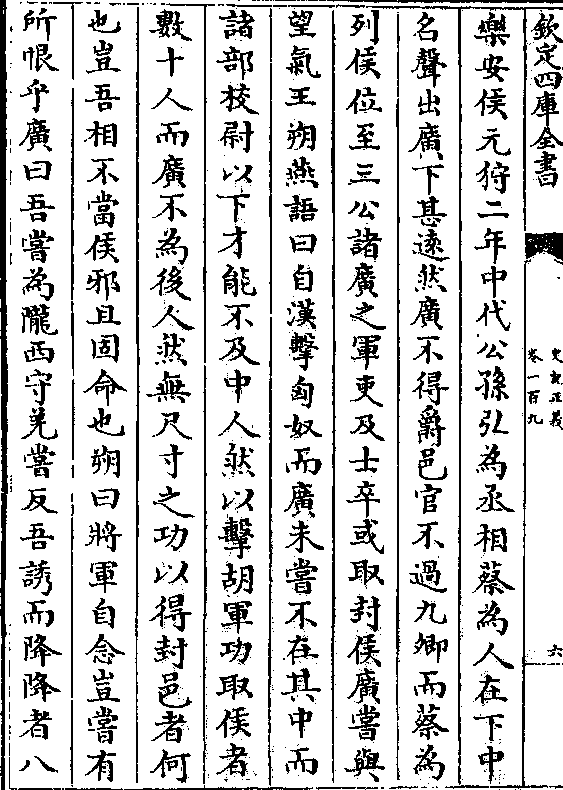 欽定四庫全書
史記正義
卷一百九
六
樂安侯元狩二年中代公孫弘為丞相蔡為人在下中
名聲出廣下甚逺然廣不得爵邑官不過九卿而蔡為
列侯位至三公諸廣之軍吏及士卒或取封侯廣嘗與
望氣王朔燕語曰自漢擊匈奴而廣未嘗不在其中而
諸部校尉以下才能不及中人然以擊胡軍功取侯者
數十人而廣不為後人然無尺寸之功以得封邑者何
也豈吾相不當侯邪且固命也朔曰將軍自念豈嘗有
所恨乎廣曰吾嘗為隴西守羌嘗反吾誘而降降者八